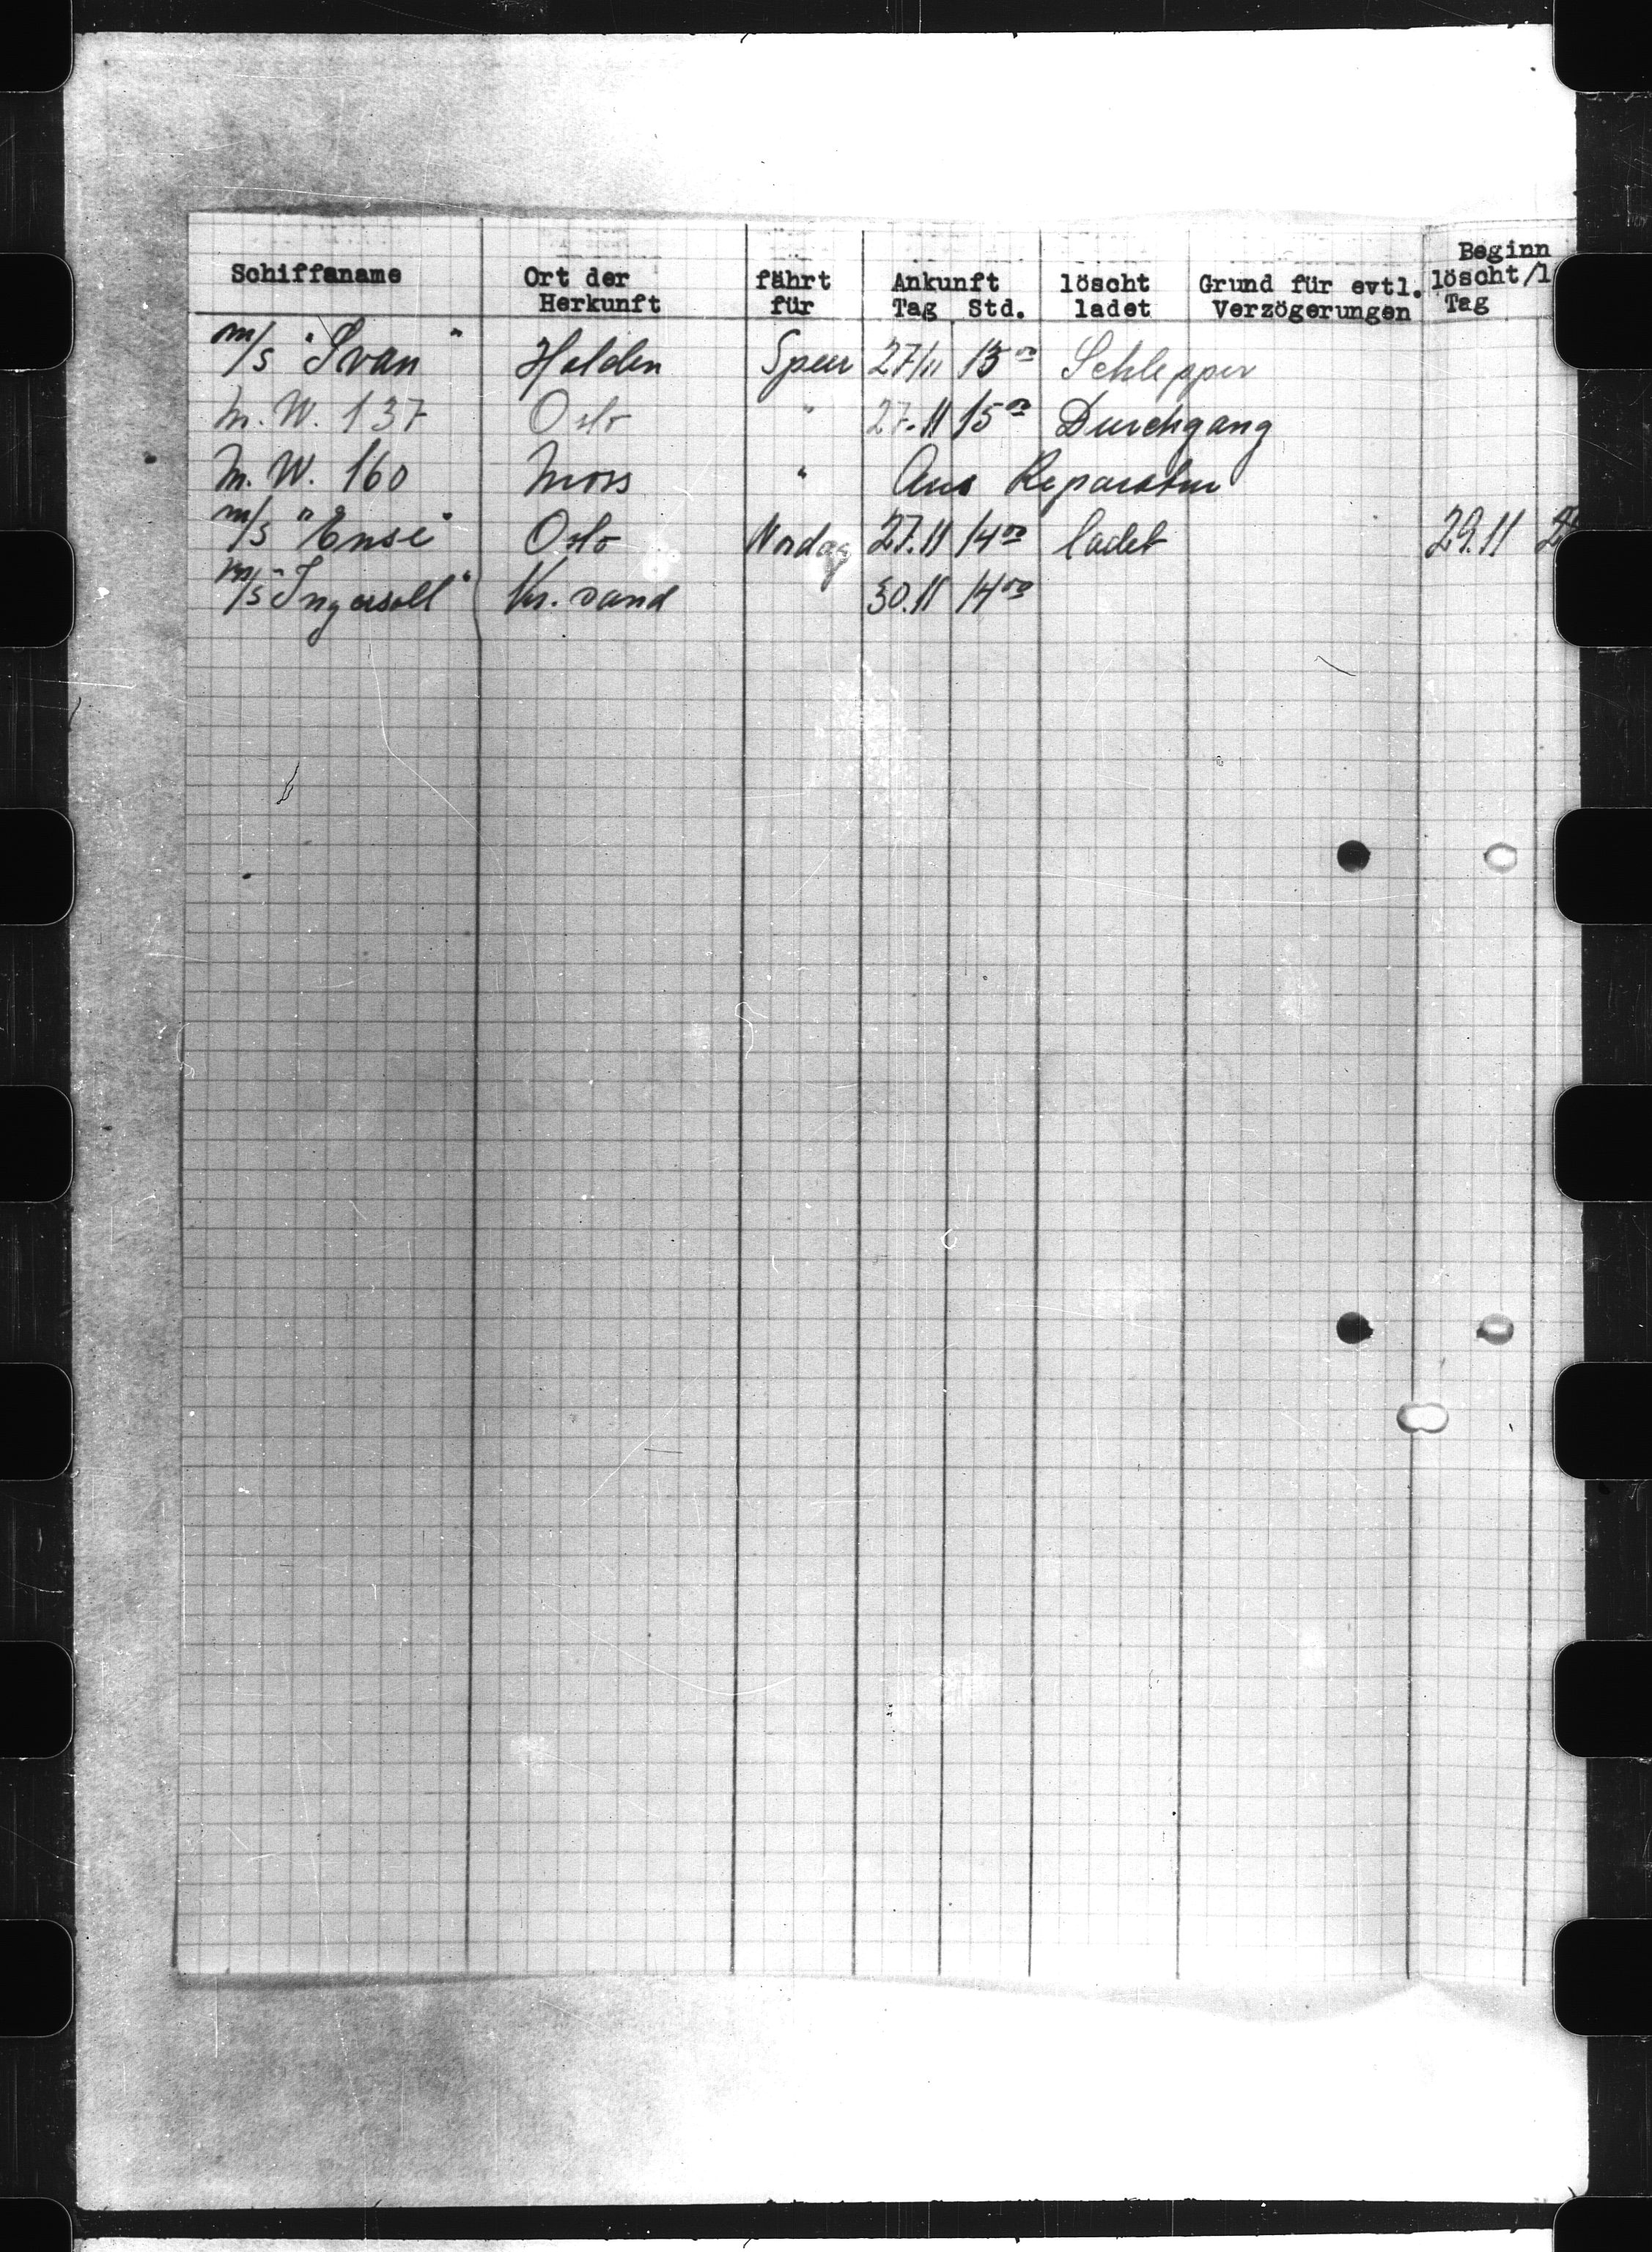 Schiffsname Ort der Herkunft fährt für Ankunft Tag Std. löscht ladet Grund für evtl. Verzögerungen Beginn löscht/l Tag
m/s "Ivan" Halden Speer 27/11 13⁰⁰ Schlepper
M.W. 137 Oslo " 27.11 15⁰⁰ Durchgang
M.W. 160 Moss " Aus Reparatur
m/s "Ensi" Oslo Nordag 27.11 14⁰⁰ ladet 29.11
m/s "Ingersoll" Kr. sand 30.11 14⁰⁰